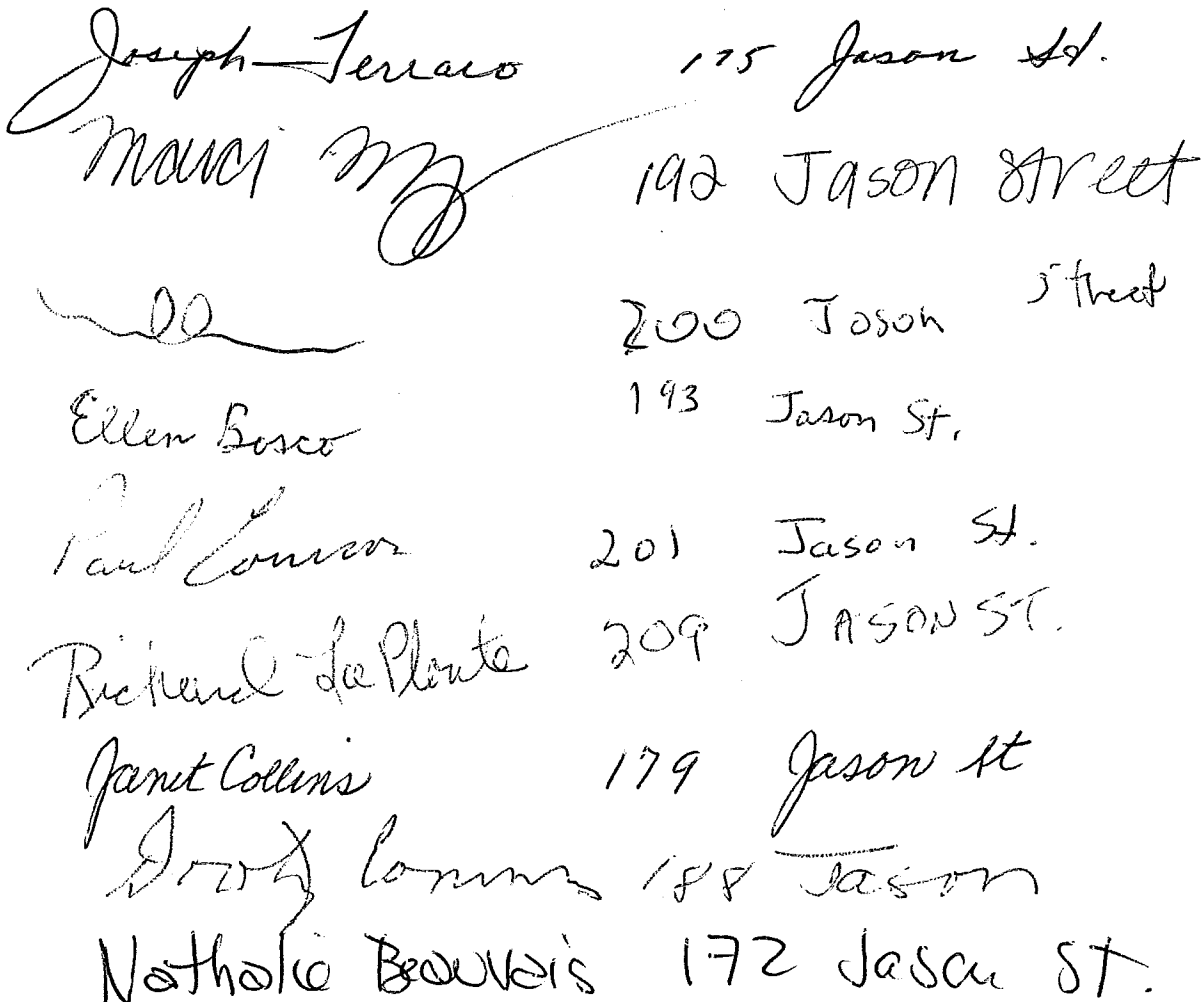 Joseph Terraco 175 Jason St.
Marci 192 Jason Street
200 Jason Street
Ellen Bosco 193 Jason St.
Paul 201 Jason St.
Richard LaPlante 209 JASON ST.
Janet Collins 179 Jason St
188 Jason
Nathalie Beauvais 172 Jason St.